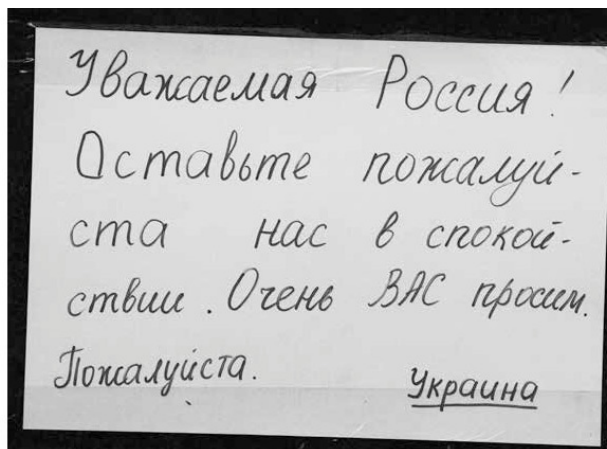 Уважаемая Россия!
Оставьте пожалуй-
ста нас в спокой-
ствии. Очень ВАС просим.
Пожалуйста. Украина